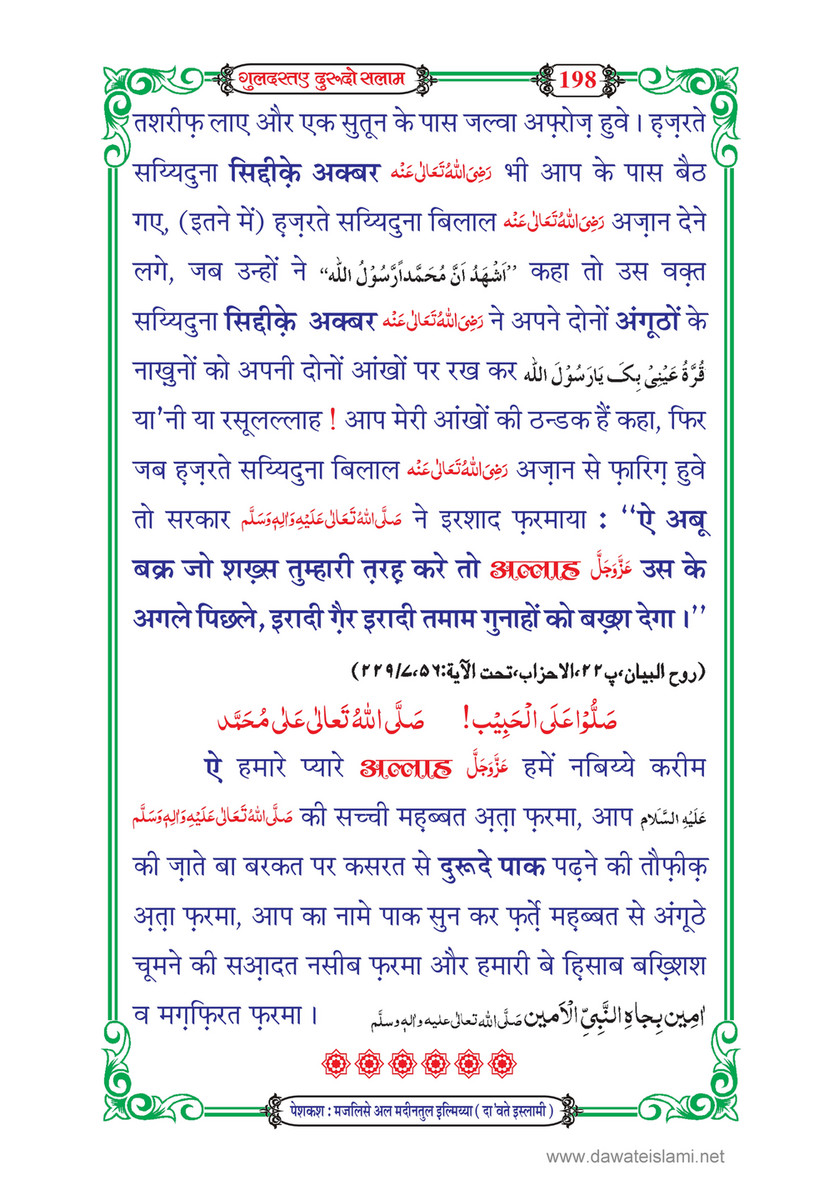 गुलदस्तए दुरूदो सलाम
198
तशरीफ़ लाए और एक सुतून के पास जल्वा अफ़्रोज़ हुवे । ह़ज़रते
सय्यिदुना सिद्दीक़े अक्बर رَضِیَ اللّٰہُ تَعَالٰی عَنْہ भी आप के पास बैठ
गए, (इतने में) ह़ज़रते सय्यिदुना बिलाल رَضِیَ اللّٰہُ تَعَالٰی عَنْہ अज़ान देने
लगे, जब उन्हों ने ”اَشْھَدُ اَنَّ مُحَمَّداًرَّسُوْلُ اللّٰہ“ कहा तो उस वक़्त
सय्यिदुना सिद्दीक़े अक्बर رَضِیَ اللّٰہُ تَعَالٰی عَنْہ ने अपने दोनों अंगूठों के
नाख़ुनों को अपनी दोनों आंखों पर रख कर قُرَّۃُ عَیْنِیْ بِکَ یَارَسُوْلَ اللّٰہ
या'नी या रसूलल्लाह ! आप मेरी आंखों की ठन्डक हैं कहा, फिर
जब ह़ज़रते सय्यिदुना बिलाल رَضِیَ اللّٰہُ تَعَالٰی عَنْہ अज़ान से फ़ारिग़ हुवे
तो सरकार صَلَّی اللّٰہُ تَعَالٰی عَلَیْہِ وَاٰلِہٖ وَسَلَّم ने इरशाद फ़रमाया : ‘‘ऐ अबू
बक्र जो शख़्स तुम्हारी त़रह़ करे तो अल्लाह عَزَّوَجَلَّ उस के
अगले पिछले, इरादी ग़ैर इरादी तमाम गुनाहों को बख़्श देगा ।’’
(روح البیان،پ۲۲،الاحزاب،تحت الآیۃ:۵۶،۷/۲۲۹)
صَلُّوْا عَلَی الْحَبِیْب! صَلَّی اللّٰہُ تَعَالٰی عَلٰی مُحَمَّد
ऐ हमारे प्यारे अल्लाह عَزَّوَجَلَّ हमें नबिय्ये करीम
صَلَّی اللّٰہُ تَعَالٰی عَلَیْہِ وَاٰلِہٖ وَسَلَّم की सच्ची मह़ब्बत अ़त़ा फ़रमा, आप عَلَیْہِ السَّلَام
की ज़ाते बा बरकत पर कसरत से दुरूदे पाक पढ़ने की तौफ़ीक़
अ़त़ा फ़रमा, आप का नामे पाक सुन कर फ़र्त़े मह़ब्बत से अंगूठे
चूमने की सआ़दत नसीब फ़रमा और हमारी बे ह़िसाब बख़्शिश
व मग़्फ़िरत फ़रमा । اٰمِین بِجاہِ النَّبِیِّ الْاَمین صَلَّی اللّٰہ تعالٰی علیہ واٰلہٖ وسلَّم
पेशकश : मजलिसे अल मदीनतुल इल्मिय्या ( दा'वते इस्लामी )
www.dawateislami.net